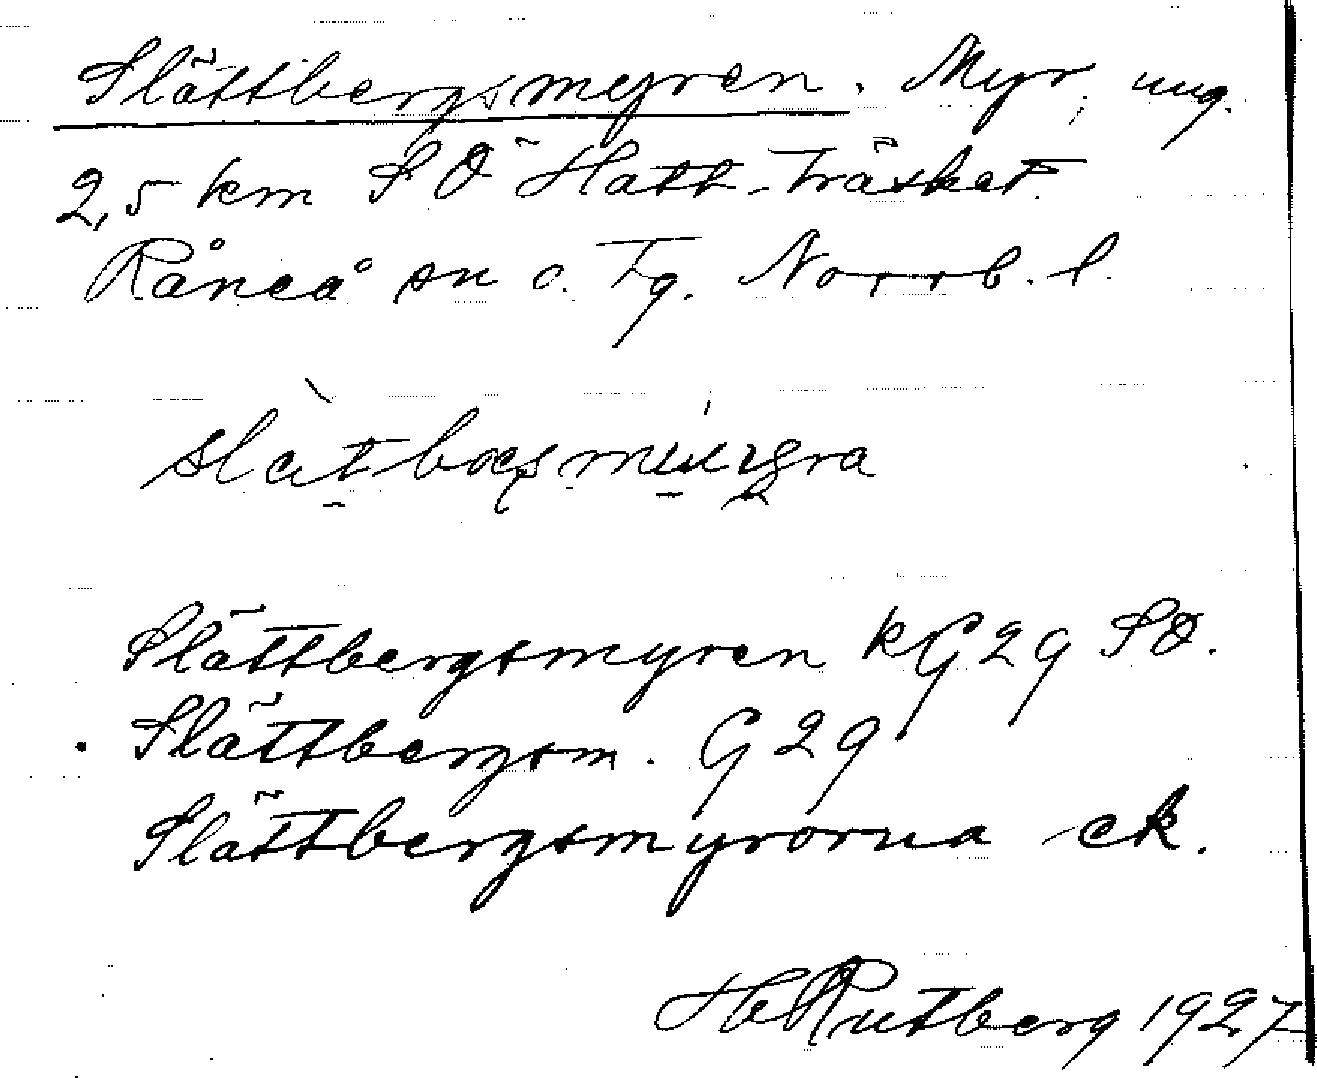 Slättbergsmyren. Myr, ung.
2,5 km SÖ Hatt-Träsket.
Råneå sn o. tg. Norrb. l.
Slättbergsmyren kG29 SÖ.
Slättbergsm. G29
Slättbergsmyrorna ek.
H Rutberg 1927